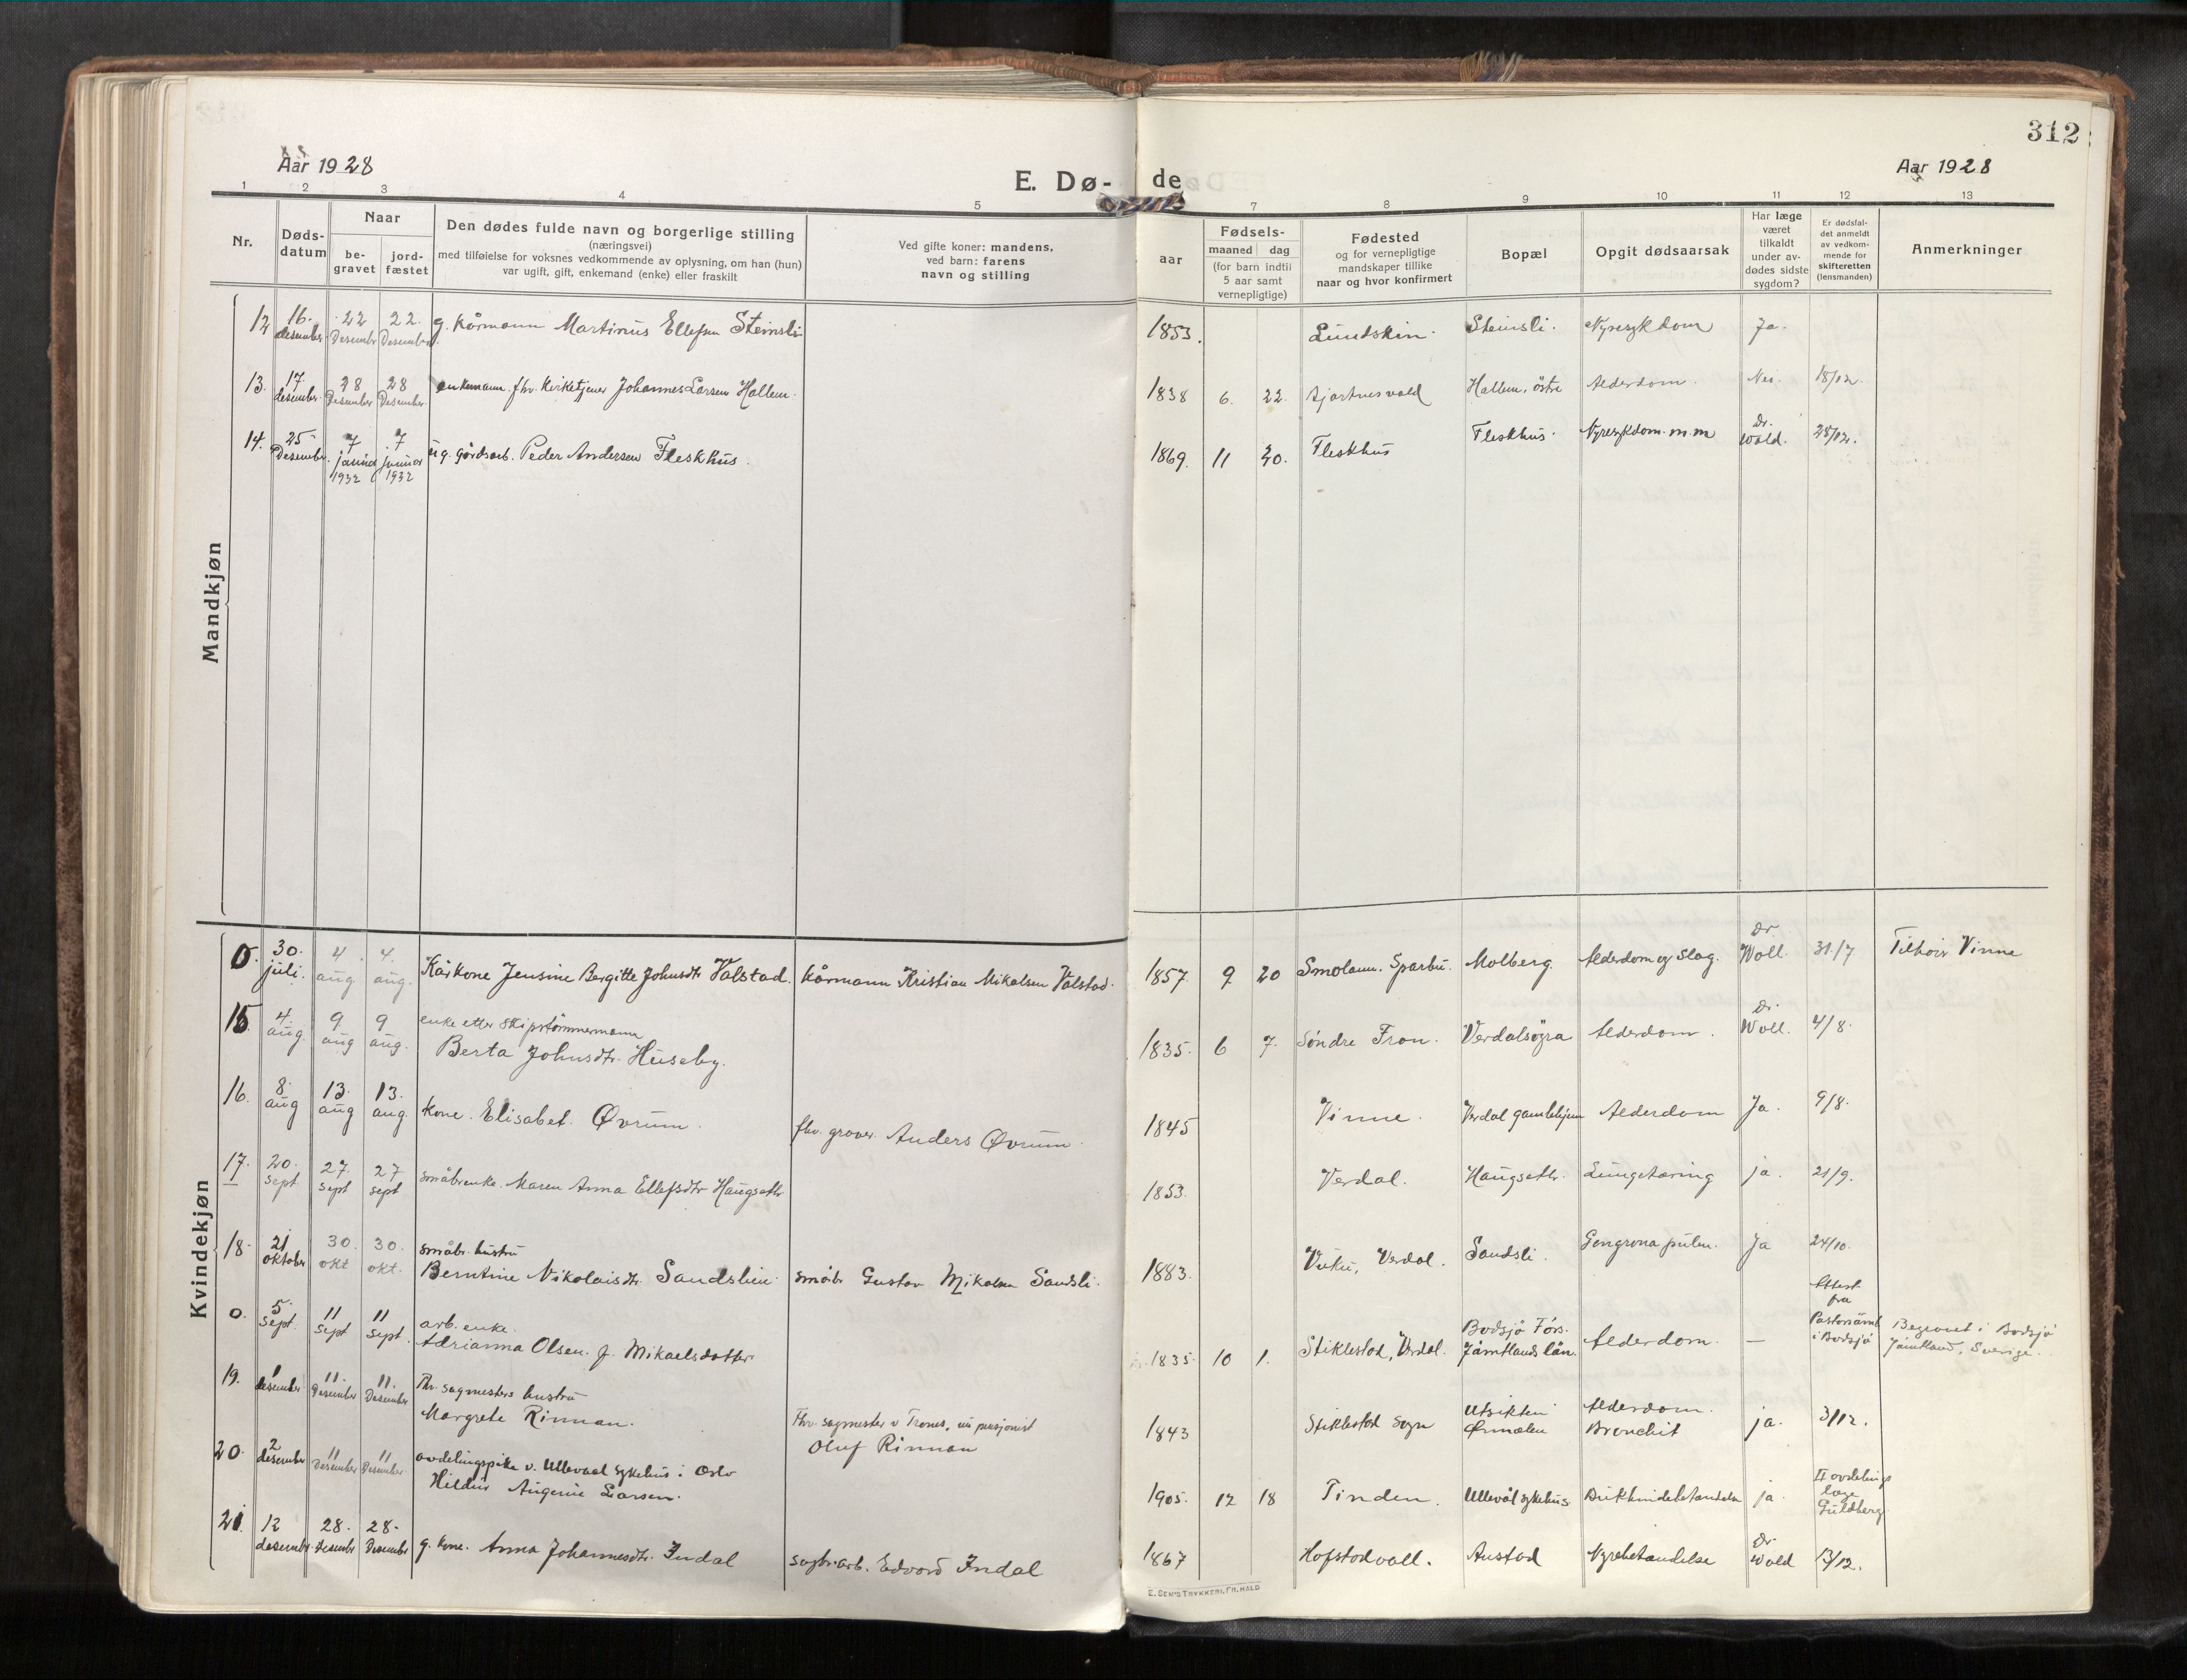 312
Aar 1928
Aar 1928
E. Dø- de
1 2 3 4 5 7 8 9 10 11 12 13
Nr.
Døds-
datum
Naar
be-
gravet
jord-
fæstet
Den dødes fulde navn og borgerlige stilling
(næringsvei)
med tilføielse for voksnes vedkommende av oplysning, om han (hun)
var ugift, gift, enkemand (enke) eller fraskilt
Ved gifte koner: mandens,
ved barn: farens
navn og stilling
Fødsels-
aar
maaned dag
(for barn indtil
5 aar samt
vernepligtige)
Fødested
og for vernepligtige
mandskaper tillike
naar og hvor konfirmert
Bopæl
Opgit dødsaarsak
Har læge
været
tilkaldt
under av-
dødes sidste
sygdom?
Er dødsfal-
det anmeldt
av vedkom-
mende for
skifteretten
(lensmanden)
Anmerkninger
Mandkjøn
12 16. desember 22 Desember 22. Desember g. kårmann Martinus Ellefsen Steinsli 1853. Lundskin. Steinsli. Nyresykdom Ja.
13. 17 desember 28 Desember 28 Desember enkemann. fhv. kirketjener Johannes Larsen Hallem. 1838 6. 22. Hjartnesvald Hallem, östre Alderdom. Nei. 18/12.
14. 25 Desember. 7 januar 1932 7 januar 1932 ug. gårdsarb. Peder Andersen Fleskhus. 1869. 11 20. Fleskhus Fleskhus. Nyresykdom. m.m Dr. Wold. 28/12.
Kvindekjøn
0. 30. juli. 4. aug. 4. aug. Kårkone Jensine Bergitte Johnsdtr Valstad. kårmann Kristian Mikalsen Valstad. 1857. 9 20 Smolann. Sparbu. Molberg. Alderdom og Slag. Dr Woll. 31/7 Tilhøir Vinne
15. 4. aug. 9. aug 9 aug. enke etter skipstömmermann
Berta Johnsdtr. Huseby. 1835. 6 7. Söndre Fron. Verdalsöra Alderdom. Dr Woll. 4/8.
16. 8. aug 13. aug 13. aug. kone. Elisabet. Øvrum. fhv. graver. Anders Øvrum. 1845 Vinne. Verdal gamlehjem Alderdom Ja. 9/8.
17. 20. sept 27. sept 27 sept småbr.enke. Maren Anna Ellefsdtr Haugseth 1853. Verdal. Haugseth. Lungetæring ja. 21/9.
18. 21 oktober 30. okt 30. okt. småbr. hustru
Berntine Nikolaisdtr. Sandslien. småbr Gustav Mikalsen Sandsli. 1883. Vuku, Verdal. Sandsli. Gengrona pulm. Ja 24/10.
0. 5. sept. 11 sept 11 sept. arb. enke.
Adrianna Olsen. f. Mikaelsdotter 1835. 10 1. Stiklestad, Verdal. Bodsjö Förs. Jämtlands län. Alderdom. — Attest fra Pastorsämb. i Bodsjö Begravet i Bodsjö Jämtland, Sverige.
19. 1 desember 11. Desember 11. Desember Fhv. sagmesters hustru
Margrete Rinnan. Fhv. sagmester v Trones, nu pensjonist
Oluf Rinnan 1843 Stiklestad sogn Utsikten Ørmelen Alderdom. Bronchit ja. 3/12.
20. 2 desember 11 Desember 11 Desember. avdelingspike v. Ullevaal sykehus i Oslo
Hildur Augenie Larsen. 1905. 12 18 Tinden. Ullevål sykehus. Bukhinnebetændelse ja. II avdelings læge Guldberg.
21. 12 desember. 28. Desember 28. Desember g. kone. Anna Johannesdtr. Indal sagbr.arb. Edvard Indal 1867 Hofstadvall. Austad Nyrebetændelse Dr. Wold 13/12.
E. SEM'S TRYKKERI, FR.HALD